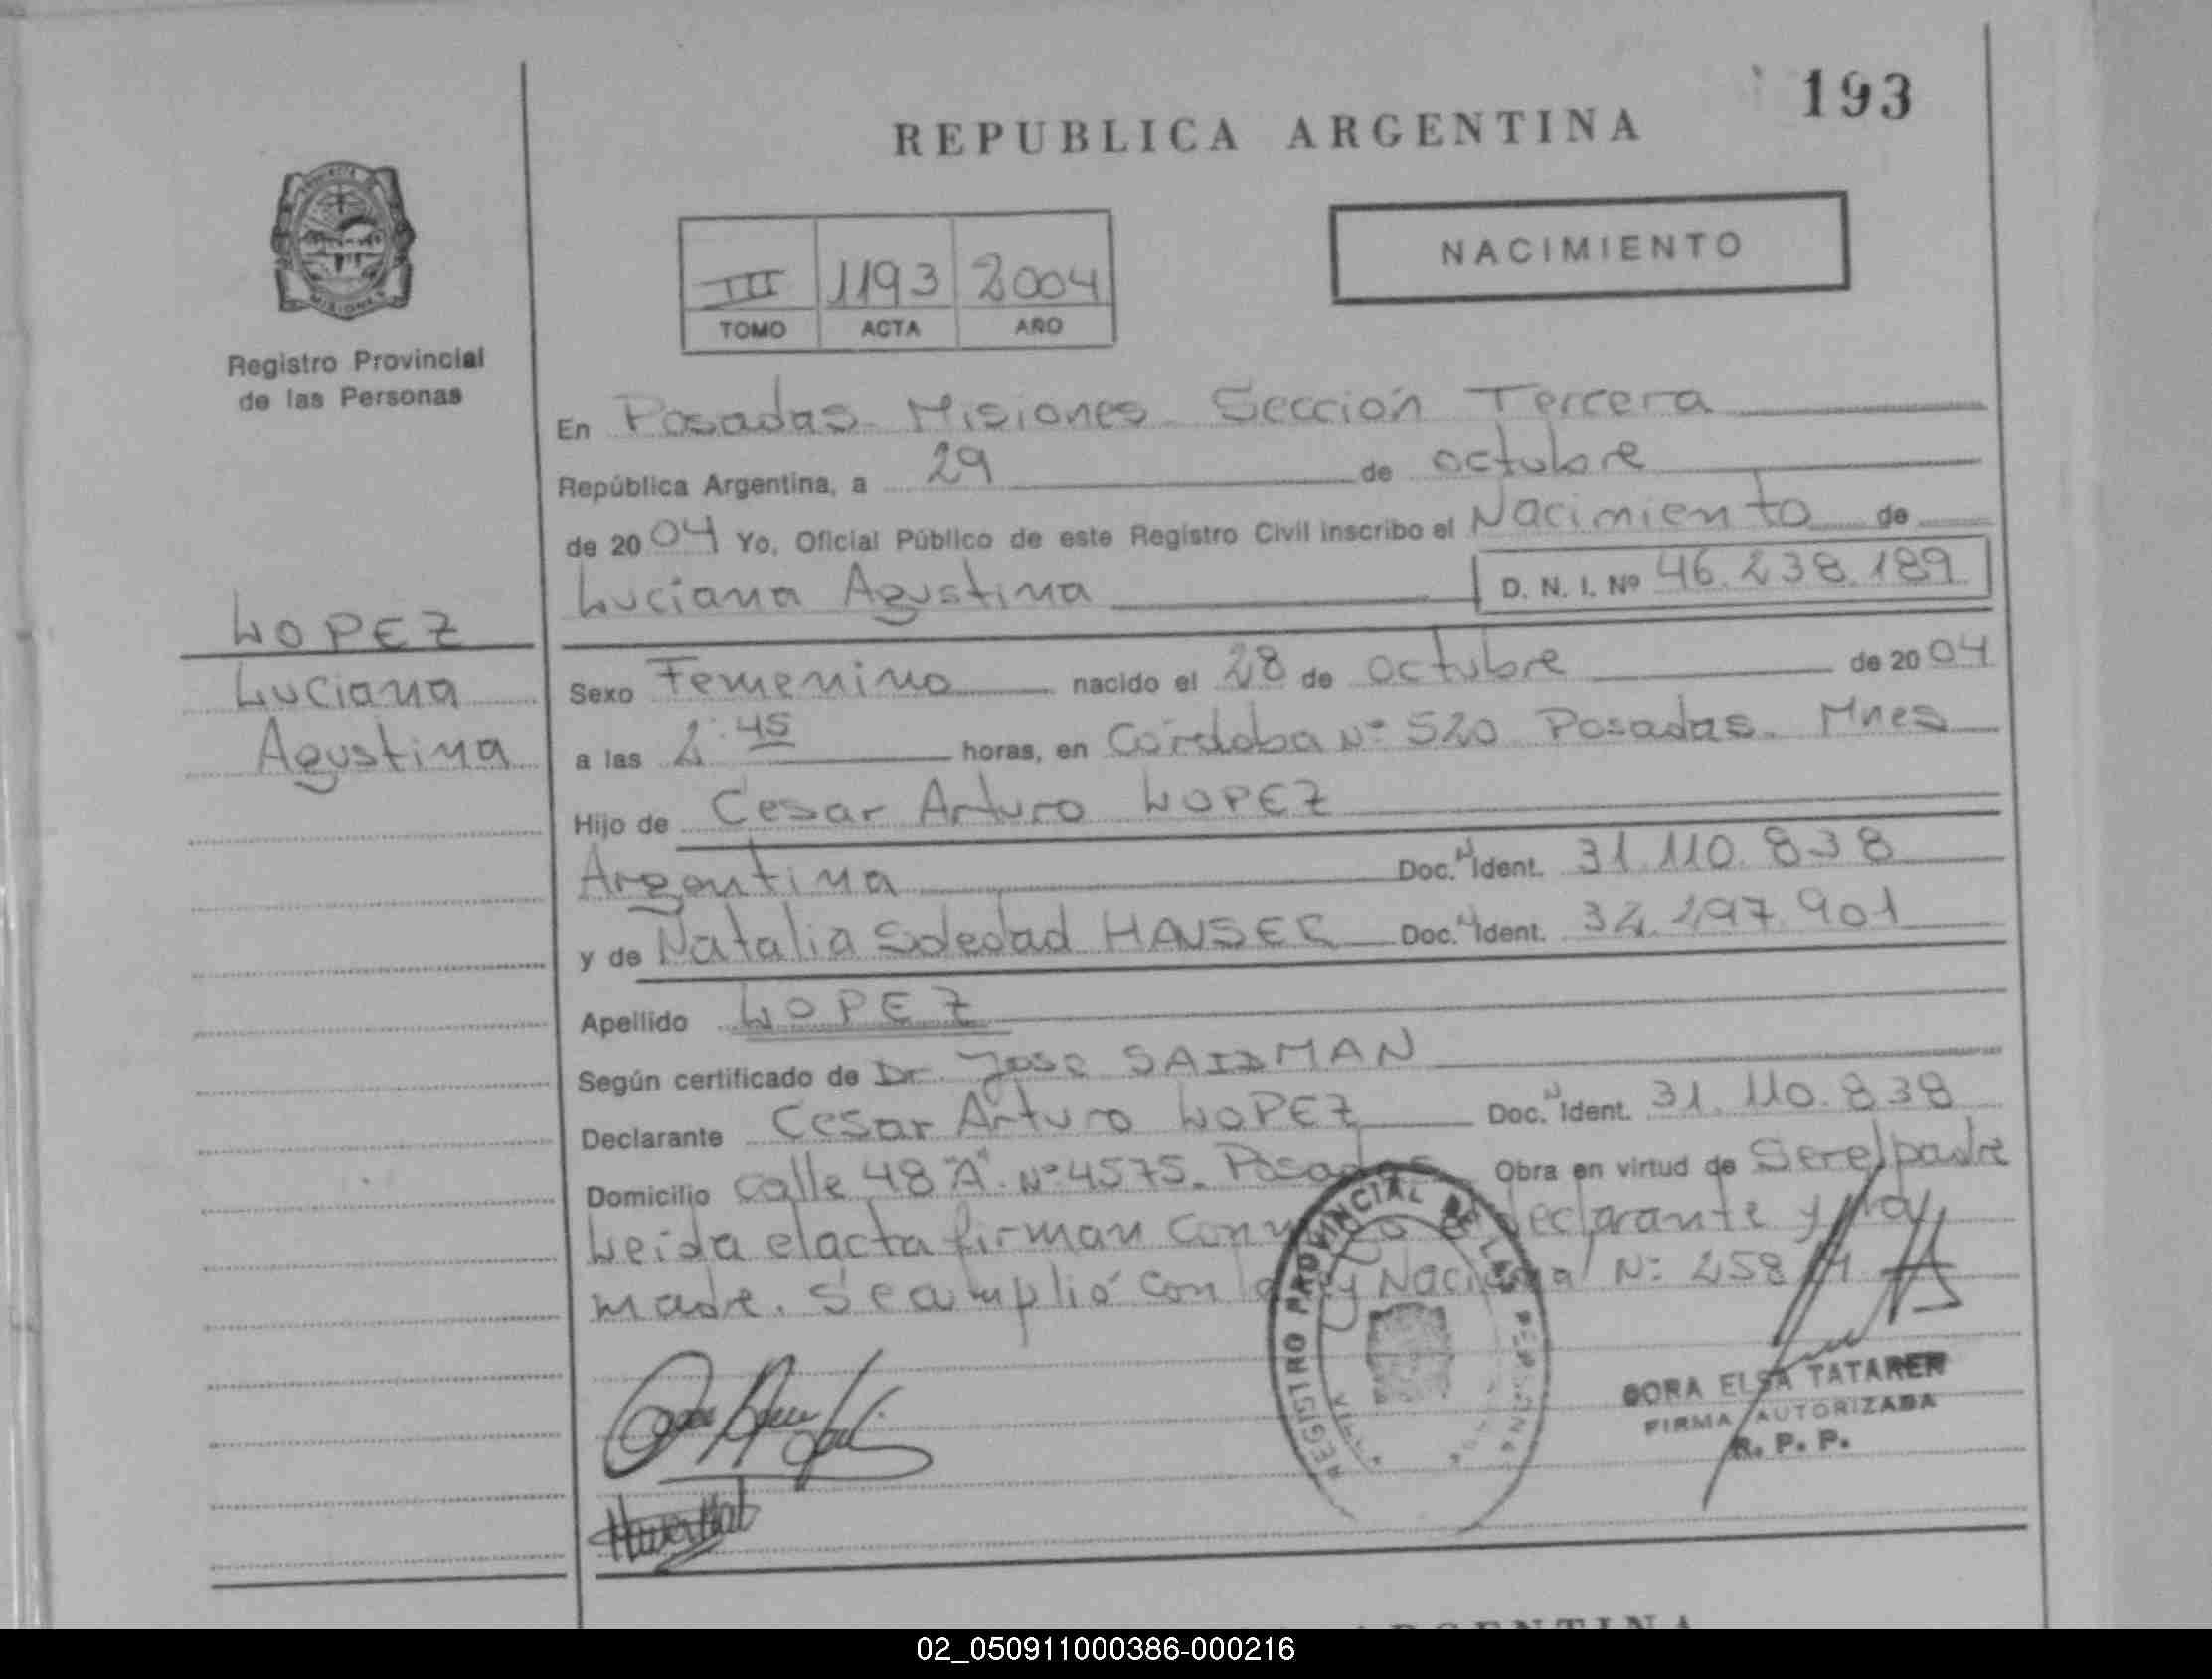 193
REPUBLICA ARGENTINA
NACIMIENTO
III 1193 2004
TOMO ACTA AÑO
Registro Provincial
de las Personas
En Posadas - Misiones - Sección Tercera
República Argentina, a 29 de octubre
de 2004 Yo, Oficial Público de este Registro Civil inscribo el Nacimiento de
Luciana Agustina D. N. I. Nº 46.238.189
LOPEZ
Luciana
Agustina
Sexo Femenino nacido el 28 de octubre de 2004
a las 2:45 horas, en Córdoba Nº 520 Posadas - Mnes
Hijo de Cesar Arturo LOPEZ
Argentina Doc. Ident. 31.110.838
y de Natalia Soledad Doc. Ident. 297.901
Apellido LOPEZ
Según certificado de Dr. Jose SAIDMAN
Declarante Cesar Arturo LOPEZ Doc. Ident. 31.110.838
Domicilio calle 48 "A" Nº 4575 - Posadas Obra en virtud de Ser el padre
Leida el acta firman declarante y
madre. Se amplió con Nacional Nº
REGISTRO PROVINCIAL DE LAS PERSONAS
ELSA TATAREN
FIRMA AUTORIZADA
R. P. P.
02_050911000386-000216